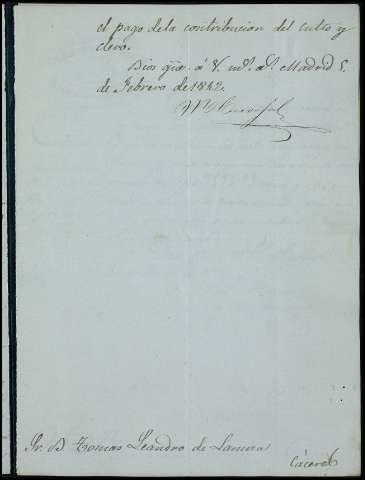 el pago de la contribucion del culto y
clero.
Dios gũe. á V. m.s a.s Madrid 5.
de Febrero de 1842.
Sr. D Tomas Leandro de
Cáceres